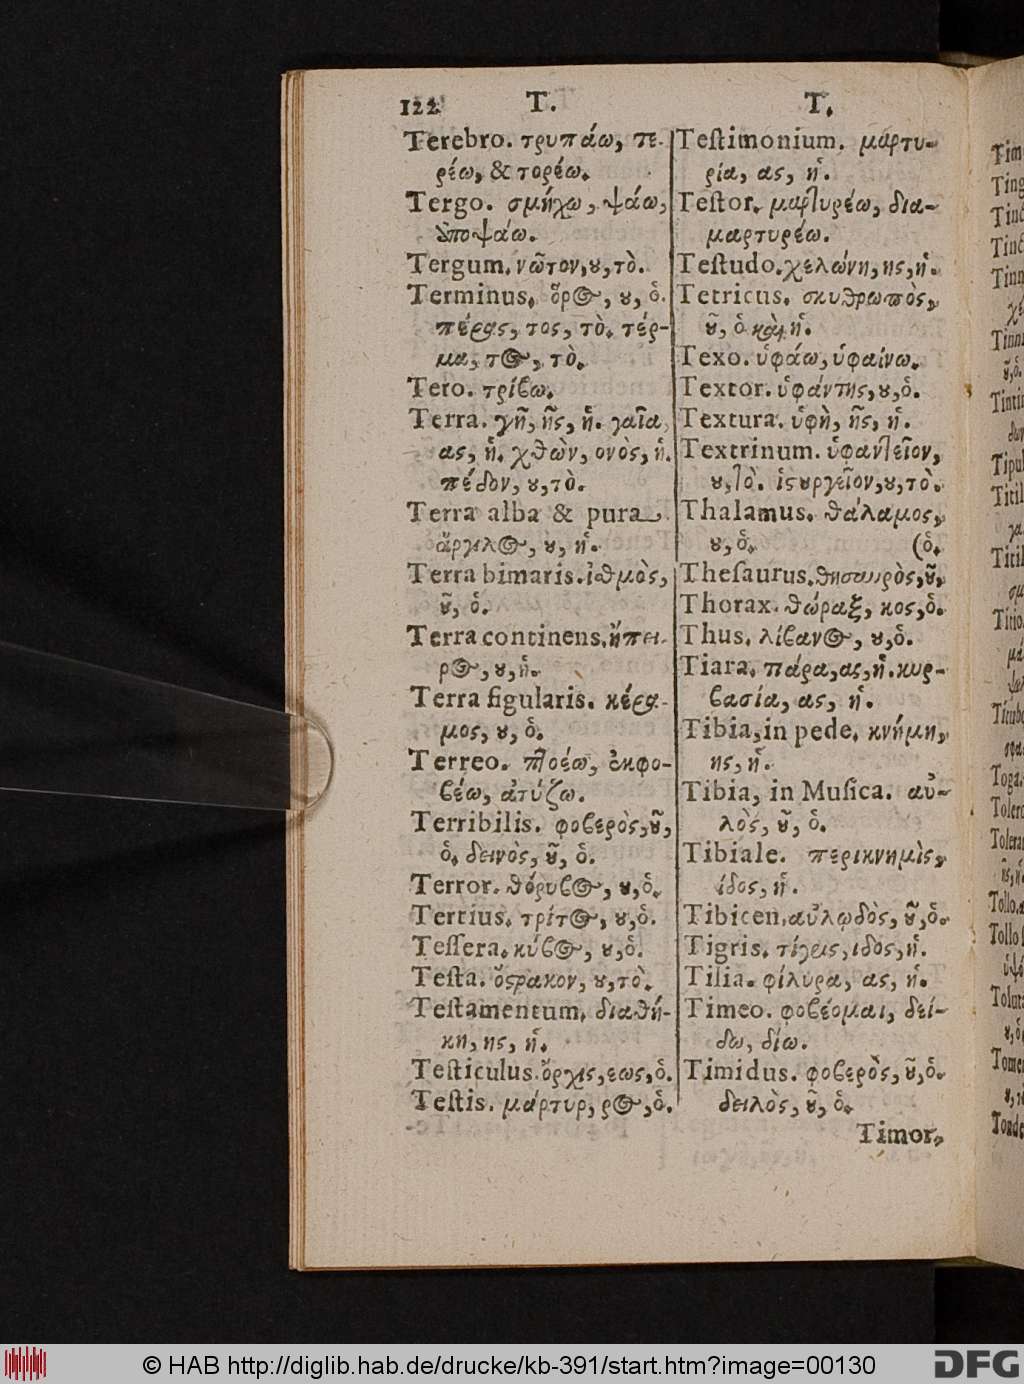 122 T. T.
Terebro. τρυπάω, τε-
ρέω, & τορέω.
Tergo. σμήχω, ψάω,
ὑποψάω.
Tergum. νῶτον, ου, τὸ.
Terminus. ὅρος, ου, ὁ.
πέρας, τος, τὸ. τέρ-
μα, τος, τὸ.
Tero. τρίβω.
Terra. γῆ, ῆς, ἡ. γαῖα,
ας, ἡ. χθὼν, ονὸς, ἡ.
πέδον, ου, τὸ.
Terra alba & pura
ἄργιλος, ου, ἡ.
Terra bimaris. ἰσθμὸς,
οῦ, ὁ.
Terra continens. ἤπει-
ρος, ου, ἡ.
Terra figularis. κέρα-
μος, ου, ὁ.
Terreo. πτοέω, ἐκφο-
βέω, ἀτύζω.
Terribilis. φοβερὸς, οῦ,
ὁ. δεινὸς, οῦ, ὁ.
Terror. θόρυβος, ου, ὁ.
Tertius. τρίτος, ου, ὁ.
Teſſera. κύβος, ου, ὁ.
Teſta. ὄστρακον, ου, τὸ.
Teſtamentum. διαθή-
κη, ης, ἡ.
Teſticulus. ὄρχις, εως, ὁ.
Teſtis. μάρτυρ, ρος, ὁ.
Teſtimonium. μαρτυ-
ρία, ας, ἡ.
Teſtor. μαρτυρέω, δια-
μαρτυρέω.
Teſtudo. χελώνη, ης, ἡ.
Tetricus. σκυθρωπὸς,
οῦ, ὁ καὶ ἡ.
Texo. ὑφάω, ὑφαίνω.
Textor. ὑφάντης, ου, ὁ.
Textura. ὑφὴ, ῆς, ἡ.
Textrinum. ὑφαντεῖον,
ου, τὸ. ἱστουργεῖον, ου, τὸ.
Thalamus. θάλαμος,
ου, ὁ. (ὁ.
Theſaurus. θησαυρὸς, οῦ,
Thorax. θώραξ, κος, ὁ.
Thus. λίβανος, ου, ὁ.
Tiara. πάρα, ας, ἡ. κυρ-
βασία, ας, ἡ.
Tibia, in pede. κνήμη,
ης, ἡ.
Tibia, in Muſica. αὐ-
λὸς, οῦ, ὁ.
Tibiale. περικνημὶς,
ίδος, ἡ.
Tibicen. αὐλῳδὸς, οῦ, ὁ.
Tigris. τίγρις, ιδος, ἡ.
Tilia. φίλυρα, ας, ἡ.
Timeo. φοβέομαι, δεί-
δω, δίω.
Timidus. φοβερὸς, οῦ, ὁ.
δειλὸς, οῦ, ὁ.
Timor.
© HAB http://diglib.hab.de/drucke/kb-391/start.htm?image=00130
DFG